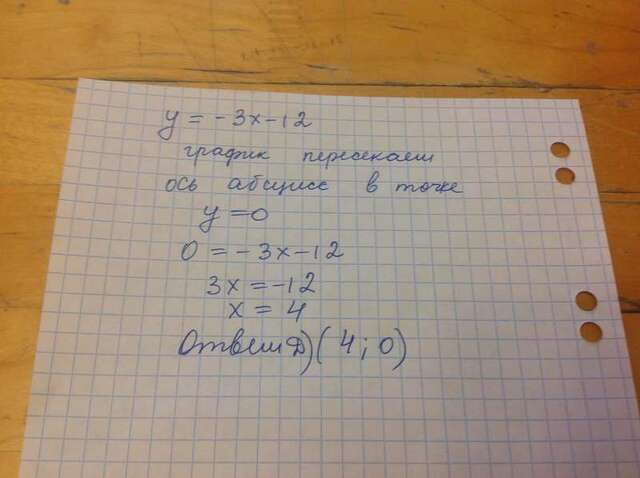 y = -3x-12
график пересекает
ось абсцисс в точке
y=0
0 = -3x-12
3x = -12
x = 4
Ответ Д) (4; 0)